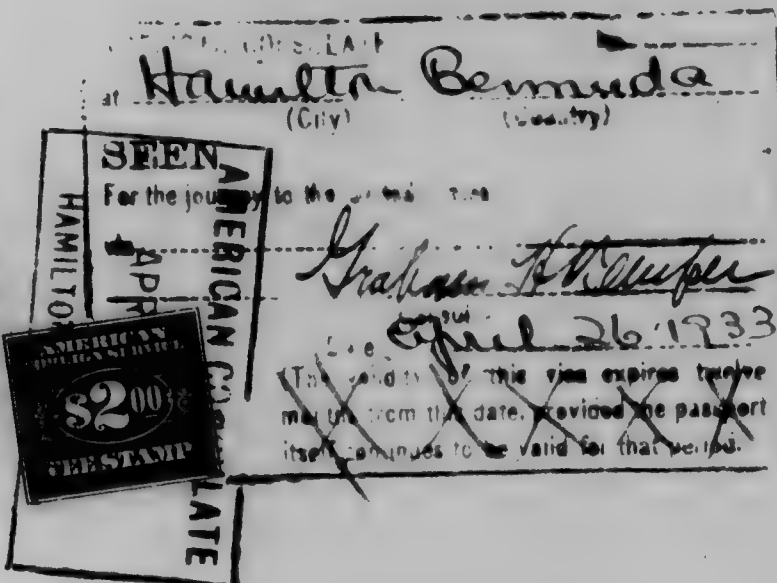 at Hamilton Bermuda
(City) (Country)
SEEN
For the journey to the
Graham H Kemper
April 26 1933
(The validity of this visa expires twelve
months from this date, provided the passport
itself continues to be valid for that period.
AMERICAN CONSULATE
APR
HAMILTON
AMERICAN
FOREIGN SERVICE
$2.00
FEE STAMP